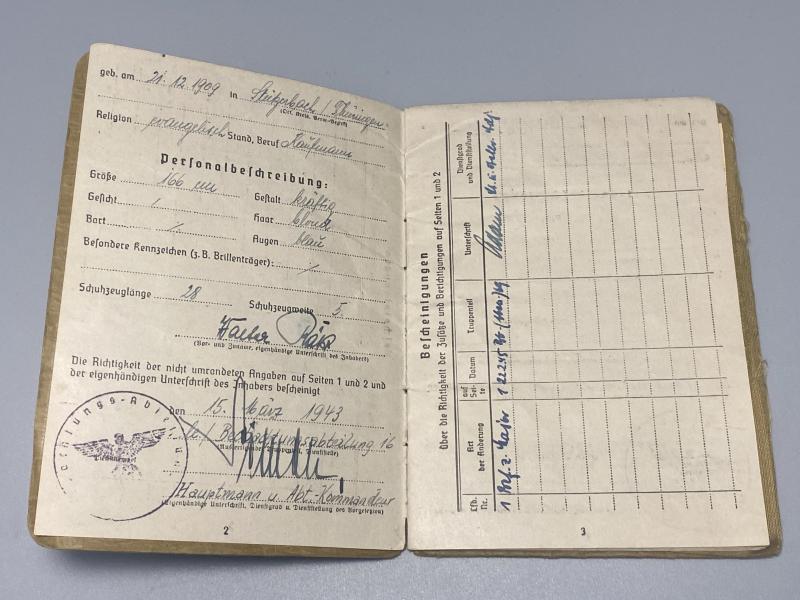 geb. am 21.12.1909 in Stützerbach / Thüringen
(Ort, Kreis, Verw.-Bezirk)
Religion evangelisch Stand, Beruf Kaufmann
Personalbeschreibung:
Größe 166 cm Gestalt kräftig
Gesicht / Haar blond
Bart / Augen blau
Besondere Kennzeichen (z. B. Brillenträger): /
Schuhzeuglänge 28 Schuhzeugweite 5
(Vor- und Zuname, eigenhändige Unterschrift des Inhabers)
Die Richtigkeit der nicht umrandeten Angaben auf Seiten 1 und 2 und
der eigenhändigen Unterschrift des Inhabers bescheinigt
den 15. März 1943
Beobachtungsabteilung 16
(Ausfertigender Truppenteil, Dienststelle)
Hauptmann u. Abt.-Kommandeur
(Eigenhändige Unterschrift, Dienstgrad u. Dienststellung des Vorgesetzten)
2
Bescheinigungen
über die Richtigkeit der Zusätze und Berichtigungen auf Seiten 1 und 2
Lfd. Nr. Art der Änderung auf Sei- te Datum Truppenteil Unterschrift Dienstgrad und Dienststellung
1 Bef. z. 1 22.2.45
3